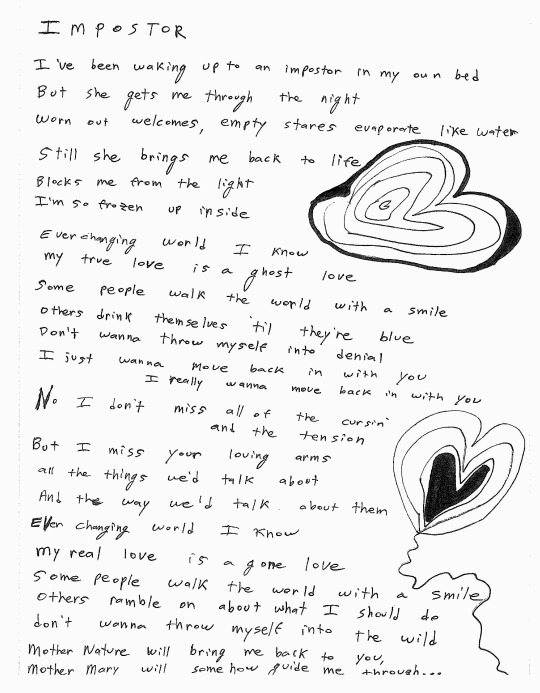 IMPOSTOR
I've been waking up to an impostor in my own bed
But she gets me through the night
worn out welcomes, empty stares evaporate like water
Still she brings me back to life
Blocks me from the light
I'm so frozen up inside
Ever changing world I know
my true love is a ghost love
Some people walk the world with a smile
others drink themselves 'til they're blue
Don't wanna throw myself into denial
I just wanna move back in with you
I really wanna move back in with you
No I don't miss all of the cursin'
and the tension
But I miss your loving arms
all the things we'd talk about
And the way we'd talk about them
Ever changing world I know
my real love is a gone love
Some people walk the world with a smile
others ramble on about what I should do
don't wanna throw myself into the wild
Mother Nature will bring me back to you,
Mother Mary will somehow guide me through...